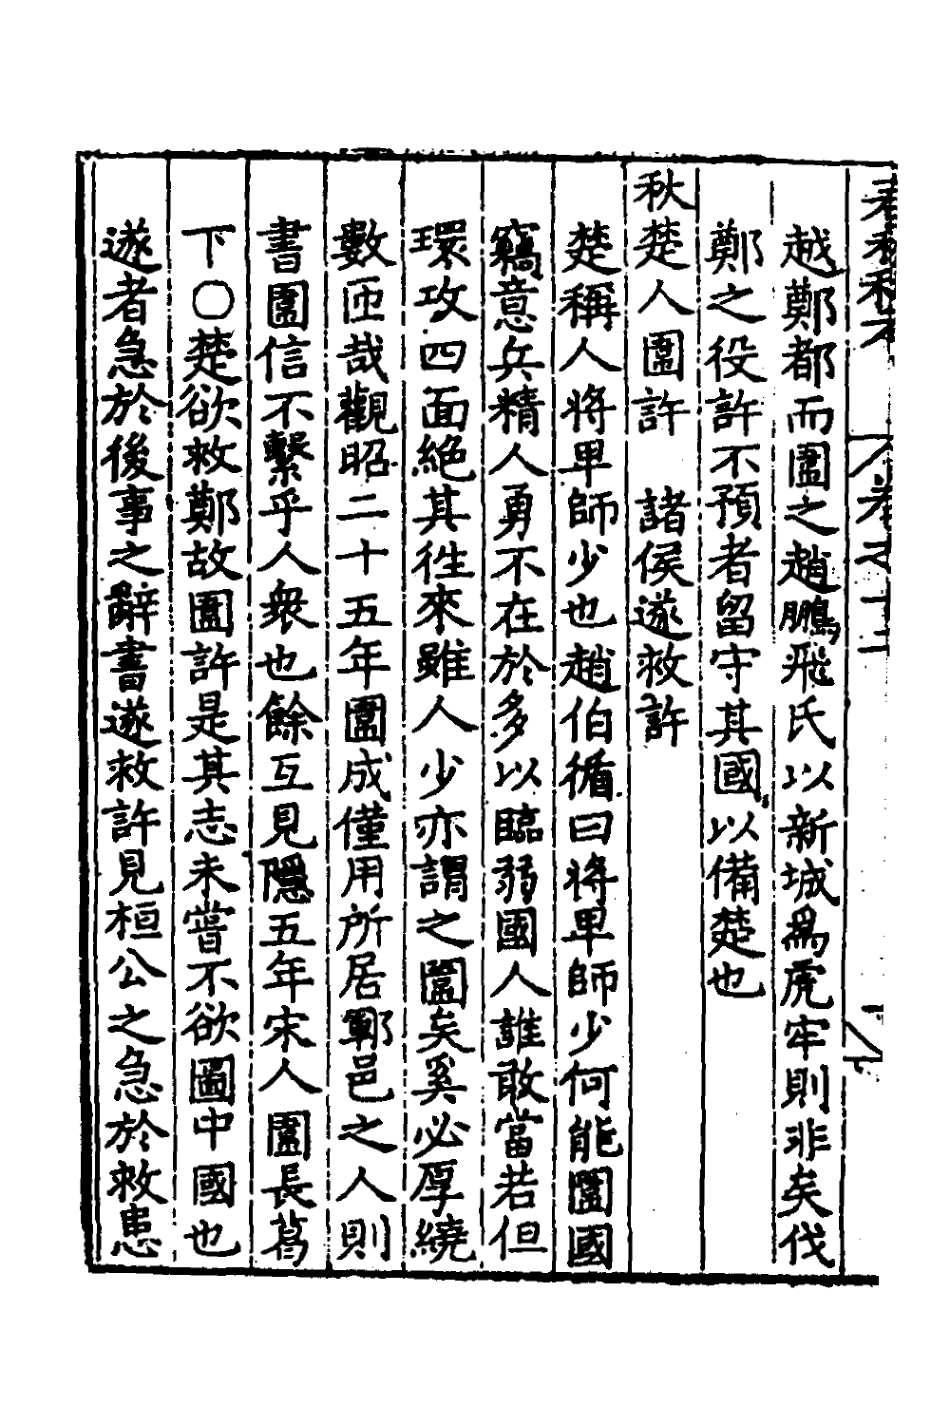 越鄭都而圍之趙鵬飛氏以新城爲虎牢則非矣伐
鄭之役許不預者留守其國以備楚也
秋楚人圍許　諸侯遂救許
楚稱人將卑師少也趙伯循曰將卑師少何能圍國
竊意兵精人勇不在於多以臨弱國人誰敢當若但
環攻四面絕其徃來雖人少亦謂之圍矣奚必厚繞
數匝哉觀昭二十五年圍成僅用所居鄆邑之人則
書圍信不繫乎人衆也餘互見隱五年宋人圍長葛
下〇楚欲救鄭故圍許是其志未嘗不欲圖中國也
遂者急於後事之辭書遂救許見桓公之急於救患